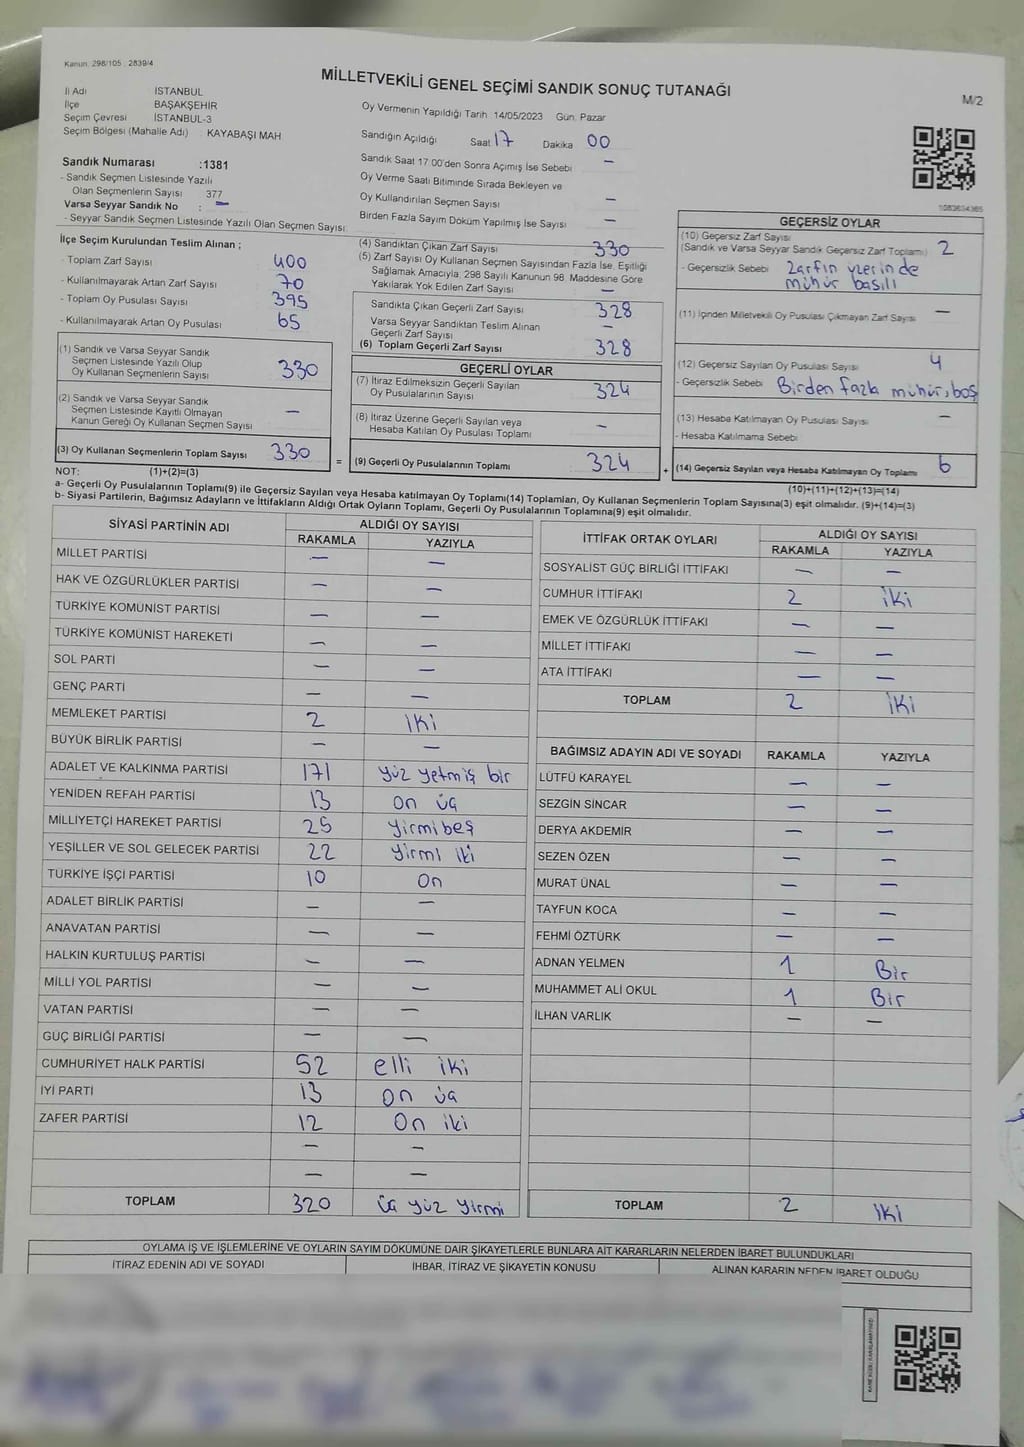 Kanun: 298/105 , 2839/4
MİLLETVEKİLİ GENEL SEÇİMİ SANDIK SONUÇ TUTANAĞI
M/2
İl Adı İSTANBUL
İlçe BAŞAKŞEHİR
Seçim Çevresi İSTANBUL-3
Seçim Bölgesi (Mahalle Adı) : KAYABAŞI MAH
Oy Vermenin Yapıldığı Tarih: 14/05/2023 Gün: Pazar
Sandığın Açıldığı Saat 17 Dakika 00
Sandık Saat 17:00'den Sonra Açımış İse Sebebi –
Oy Verme Saati Bitiminde Sırada Bekleyen ve
Oy Kullandırılan Seçmen Sayısı –
Birden Fazla Sayım Döküm Yapılmış İse Sayısı –
Sandık Numarası :1381
- Sandık Seçmen Listesinde Yazılı
Olan Seçmenlerin Sayısı 377
Varsa Seyyar Sandık No : –
- Seyyar Sandık Seçmen Listesinde Yazılı Olan Seçmen Sayısı:
İlçe Seçim Kurulundan Teslim Alınan ;
- Toplam Zarf Sayısı 400
- Kullanılmayarak Artan Zarf Sayısı 70
- Toplam Oy Pusulası Sayısı 395
- Kullanılmayarak Artan Oy Pusulası 65
(1) Sandık ve Varsa Seyyar Sandık
Seçmen Listesinde Yazılı Olup
Oy Kullanan Seçmenlerin Sayısı 330
(2) Sandık ve Varsa Seyyar Sandık
Seçmen Listesinde Kayıtlı Olmayan
Kanun Gereği Oy Kullanan Seçmen Sayısı –
(3) Oy Kullanan Seçmenlerin Toplam Sayısı 330
(4) Sandıktan Çıkan Zarf Sayısı 330
(5) Zarf Sayısı Oy Kullanan Seçmen Sayısından Fazla İse, Eşitliği
Sağlamak Amacıyla, 298 Sayılı Kanunun 98. Maddesine Göre
Yakılarak Yok Edilen Zarf Sayısı –
Sandıkta Çıkan Geçerli Zarf Sayısı 328
Varsa Seyyar Sandıktan Teslim Alınan
Geçerli Zarf Sayısı –
(6) Toplam Geçerli Zarf Sayısı 328
GEÇERLİ OYLAR
(7) İtiraz Edilmeksizin Geçerli Sayılan
Oy Pusulalarının Sayısı 324
(8) İtiraz Üzerine Geçerli Sayılan veya
Hesaba Katılan Oy Pusulası Toplamı –
= (9) Geçerli Oy Pusulalarının Toplamı 324
1083634365
GEÇERSİZ OYLAR
(10) Geçersiz Zarf Sayısı
(Sandık ve Varsa Seyyar Sandık Geçersiz Zarf Toplamı) 2
- Geçersizlik Sebebi Zarfın üzerinde
mühür basılı
(11) İçinden Milletvekili Oy Pusulası Çıkmayan Zarf Sayısı –
(12) Geçersiz Sayılan Oy Pusulası Sayısı 4
- Geçersizlik Sebebi Birden fazla mühür, boş
(13) Hesaba Katılmayan Oy Pusulası Sayısı –
- Hesaba Katılmama Sebebi
+ (14) Geçersiz Sayılan veya Hesaba Katılmayan Oy Toplamı 6
NOT: (1)+(2)=(3)
(10)+(11)+(12)+(13)=(14)
a- Geçerli Oy Pusulalarının Toplamı(9) ile Geçersiz Sayılan veya Hesaba katılmayan Oy Toplamı(14) Toplamları, Oy Kullanan Seçmenlerin Toplam Sayısına(3) eşit olmalıdır. (9)+(14)=(3)
b- Siyasi Partilerin, Bağımsız Adayların ve İttifakların Aldığı Ortak Oyların Toplamı, Geçerli Oy Pusulalarının Toplamına(9) eşit olmalıdır.
SİYASİ PARTİNİN ADI ALDIĞI OY SAYISI
RAKAMLA YAZIYLA
MİLLET PARTİSİ – –
HAK VE ÖZGÜRLÜKLER PARTİSİ – –
TÜRKİYE KOMÜNİST PARTİSİ – –
TÜRKİYE KOMÜNİST HAREKETİ – –
SOL PARTİ – –
GENÇ PARTİ – –
MEMLEKET PARTİSİ 2 iki
BÜYÜK BİRLİK PARTİSİ – –
ADALET VE KALKINMA PARTİSİ 171 yüz yetmiş bir
YENİDEN REFAH PARTİSİ 13 on üç
MİLLİYETÇİ HAREKET PARTİSİ 25 yirmi beş
YEŞİLLER VE SOL GELECEK PARTİSİ 22 yirmi iki
TÜRKİYE İŞÇİ PARTİSİ 10 On
ADALET BİRLİK PARTİSİ – –
ANAVATAN PARTİSİ – –
HALKIN KURTULUŞ PARTİSİ – –
MİLLİ YOL PARTİSİ – –
VATAN PARTİSİ – –
GÜÇ BİRLİĞİ PARTİSİ – –
CUMHURİYET HALK PARTİSİ 52 elli iki
İYİ PARTİ 13 on üç
ZAFER PARTİSİ 12 On iki
– –
– –
TOPLAM 320 üç yüz yirmi
İTTİFAK ORTAK OYLARI ALDIĞI OY SAYISI
RAKAMLA YAZIYLA
SOSYALİST GÜÇ BİRLİĞİ İTTİFAKI – –
CUMHUR İTTİFAKI 2 iki
EMEK VE ÖZGÜRLÜK İTTİFAKI – –
MİLLET İTTİFAKI – –
ATA İTTİFAKI – –
TOPLAM 2 iki
BAĞIMSIZ ADAYIN ADI VE SOYADI RAKAMLA YAZIYLA
LÜTFÜ KARAYEL – –
SEZGİN SİNCAR – –
DERYA AKDEMİR – –
SEZEN ÖZEN – –
MURAT ÜNAL – –
TAYFUN KOCA – –
FEHMİ ÖZTÜRK – –
ADNAN YELMEN 1 Bir
MUHAMMET ALİ OKUL 1 Bir
İLHAN VARLIK – –
TOPLAM 2 iki
OYLAMA İŞ VE İŞLEMLERİNE VE OYLARIN SAYIM DÖKÜMÜNE DAİR ŞİKAYETLERLE BUNLARA AİT KARARLARIN NELERDEN İBARET BULUNDUKLARI
İTİRAZ EDENİN ADI VE SOYADI İHBAR, İTİRAZ VE ŞİKAYETİN KONUSU ALINAN KARARIN NEDEN İBARET OLDUĞU